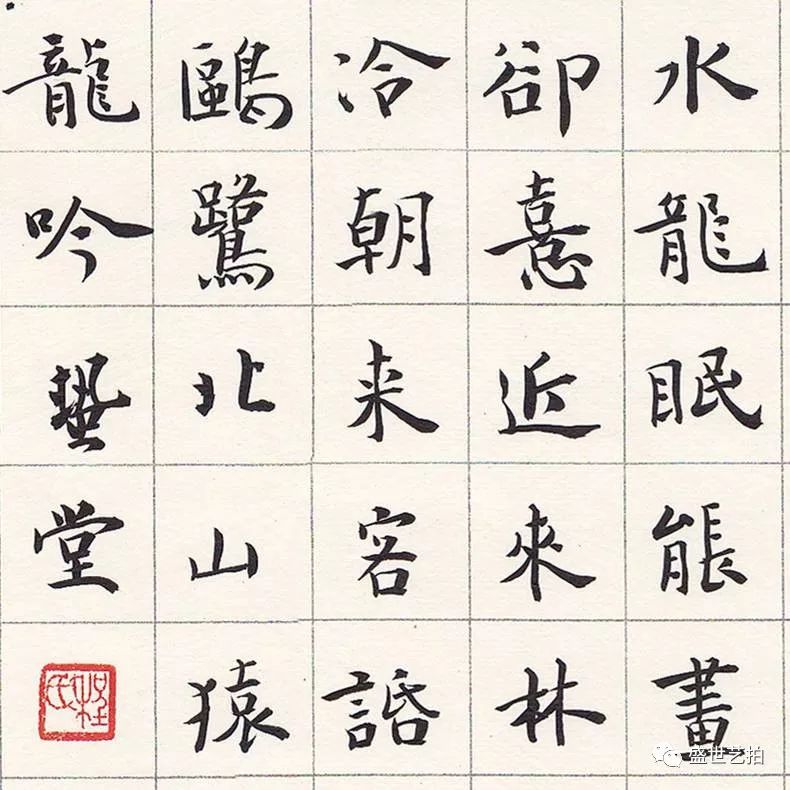 水龍眠能畫
卻憙近來林
冷朝来客諙
鷗鷺北山猿
龍吟蛩堂
盛世艺拍